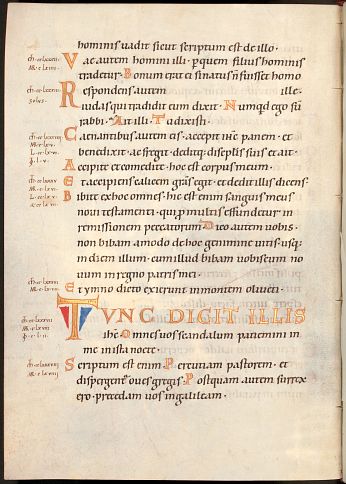 hominis uadit sicut scriptum est de illo.
Vae autem homini illi. p quem filius hominis
tradetur. Bonum erat ei si natus n fuisset homo
Respondens autem ille.
iudas qui tradidit eum dixit. Numqd ego sū
rabbi. Ait illi. Tu dixisti.
Caenantibus autem eis. accepit ihc panem. et
benedixit. ac fregit. deditq; discipłis suis et ait.
Accipite et comedite. hoc est corpus meum.
Et accipiens calicem gras egit. et dedit illis dicens.
Bibite ex hoc omnes. hic est enim sanguis meus
noui testamenti. qui p multis effundetur in
remissionem peccatorum. Dico autem uobis.
non bibam amodo de hoc genimine uitis. usq;
in diem illum. cum illud bibam uobiscum no
uum in regno patris mei.
Et ymno dicto exierunt in montem oliueti.
TVNC DICIT ILLIS
ihc. Omnes uos scandalum patiemini in
me in ista nocte.
Scriptum est enim. Percutiam pastorem. et
dispergent oues gregis. Postquam autem surrex
ero. precedam uos in galileam.